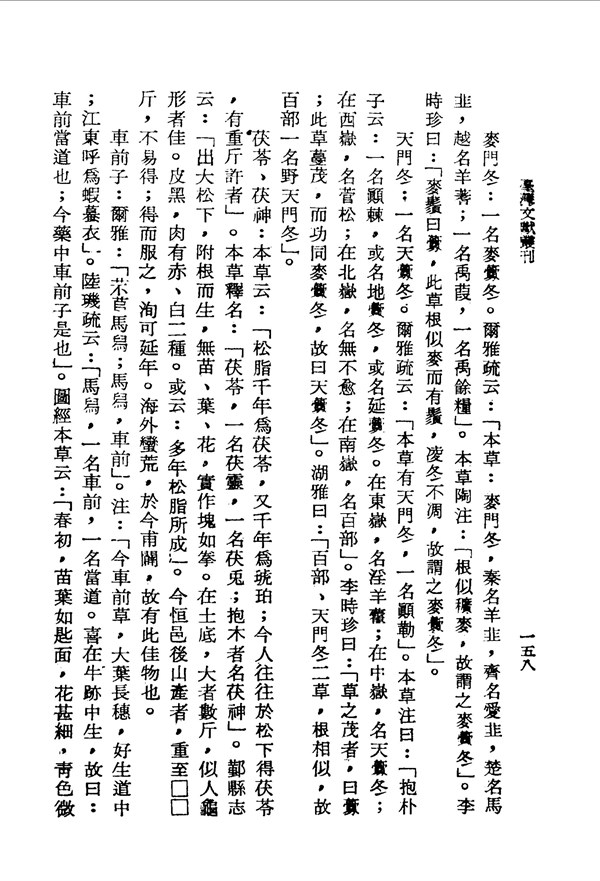 臺灣文獻叢刊
一五八
麥門冬：一名麥虋冬。爾雅疏云：「本草：麥門冬，秦名羊韭，齊名愛韭，楚名馬
韭，越名羊蓍；一名禹葭，一名禹餘糧」。本草陶注：「根似穬麥，故謂之麥虋冬」。李
時珍曰：「麥鬚曰虋，此草根似麥而有鬚，凌冬不凋，故謂之麥虋冬」。
天門冬；一名天虋冬。爾雅疏云：「本草有天門冬，一名顚勒」。本草注曰：「抱朴
子云：一名顚棘，或名地虋冬，或名延虋冬。在東嶽，名淫羊藿；在中嶽，名天虋冬；
在西嶽，名菅松；在北嶽，名無不愈；在南嶽，名百部」。李時珍曰：「草之茂者，曰虋
；此草蔓茂，而功同麥虋冬，故曰天虋冬」。湖雅曰：「百部、天門冬二草，根相似，故
百部一名野天門冬」。
茯苓、茯神：本草云：「松脂千年爲茯苓，又千年爲琥珀；今人往往於松下得茯苓
，有重斤許者」。本草釋名：「茯苓，一名茯靈，一名茯兎；抱木者名茯神」。鄞縣志
云：「出大松下，附根而生，無苗、葉、花，實作塊如拳。在土底，大者數斤，似人龜
形者佳。皮黑，肉有赤、白二種。或云：多年松脂所成」。今恒邑後山產者，重至□□
斤，不易得；得而服之，洵可延年。海外蠻荒，於今甫闢，故有此佳物也。
車前子：爾雅：「芣苢馬舄；馬舄，車前」。注：「今車前草，大葉長穗，好生道中
；江東呼爲蝦蟇衣」。陸璣疏云：「馬舄，一名車前，一名當道。喜在牛跡中生，故曰：
車前當道也；今藥中車前子是也」。圖經本草云：「春初，苗葉如匙面，花甚細，靑色微